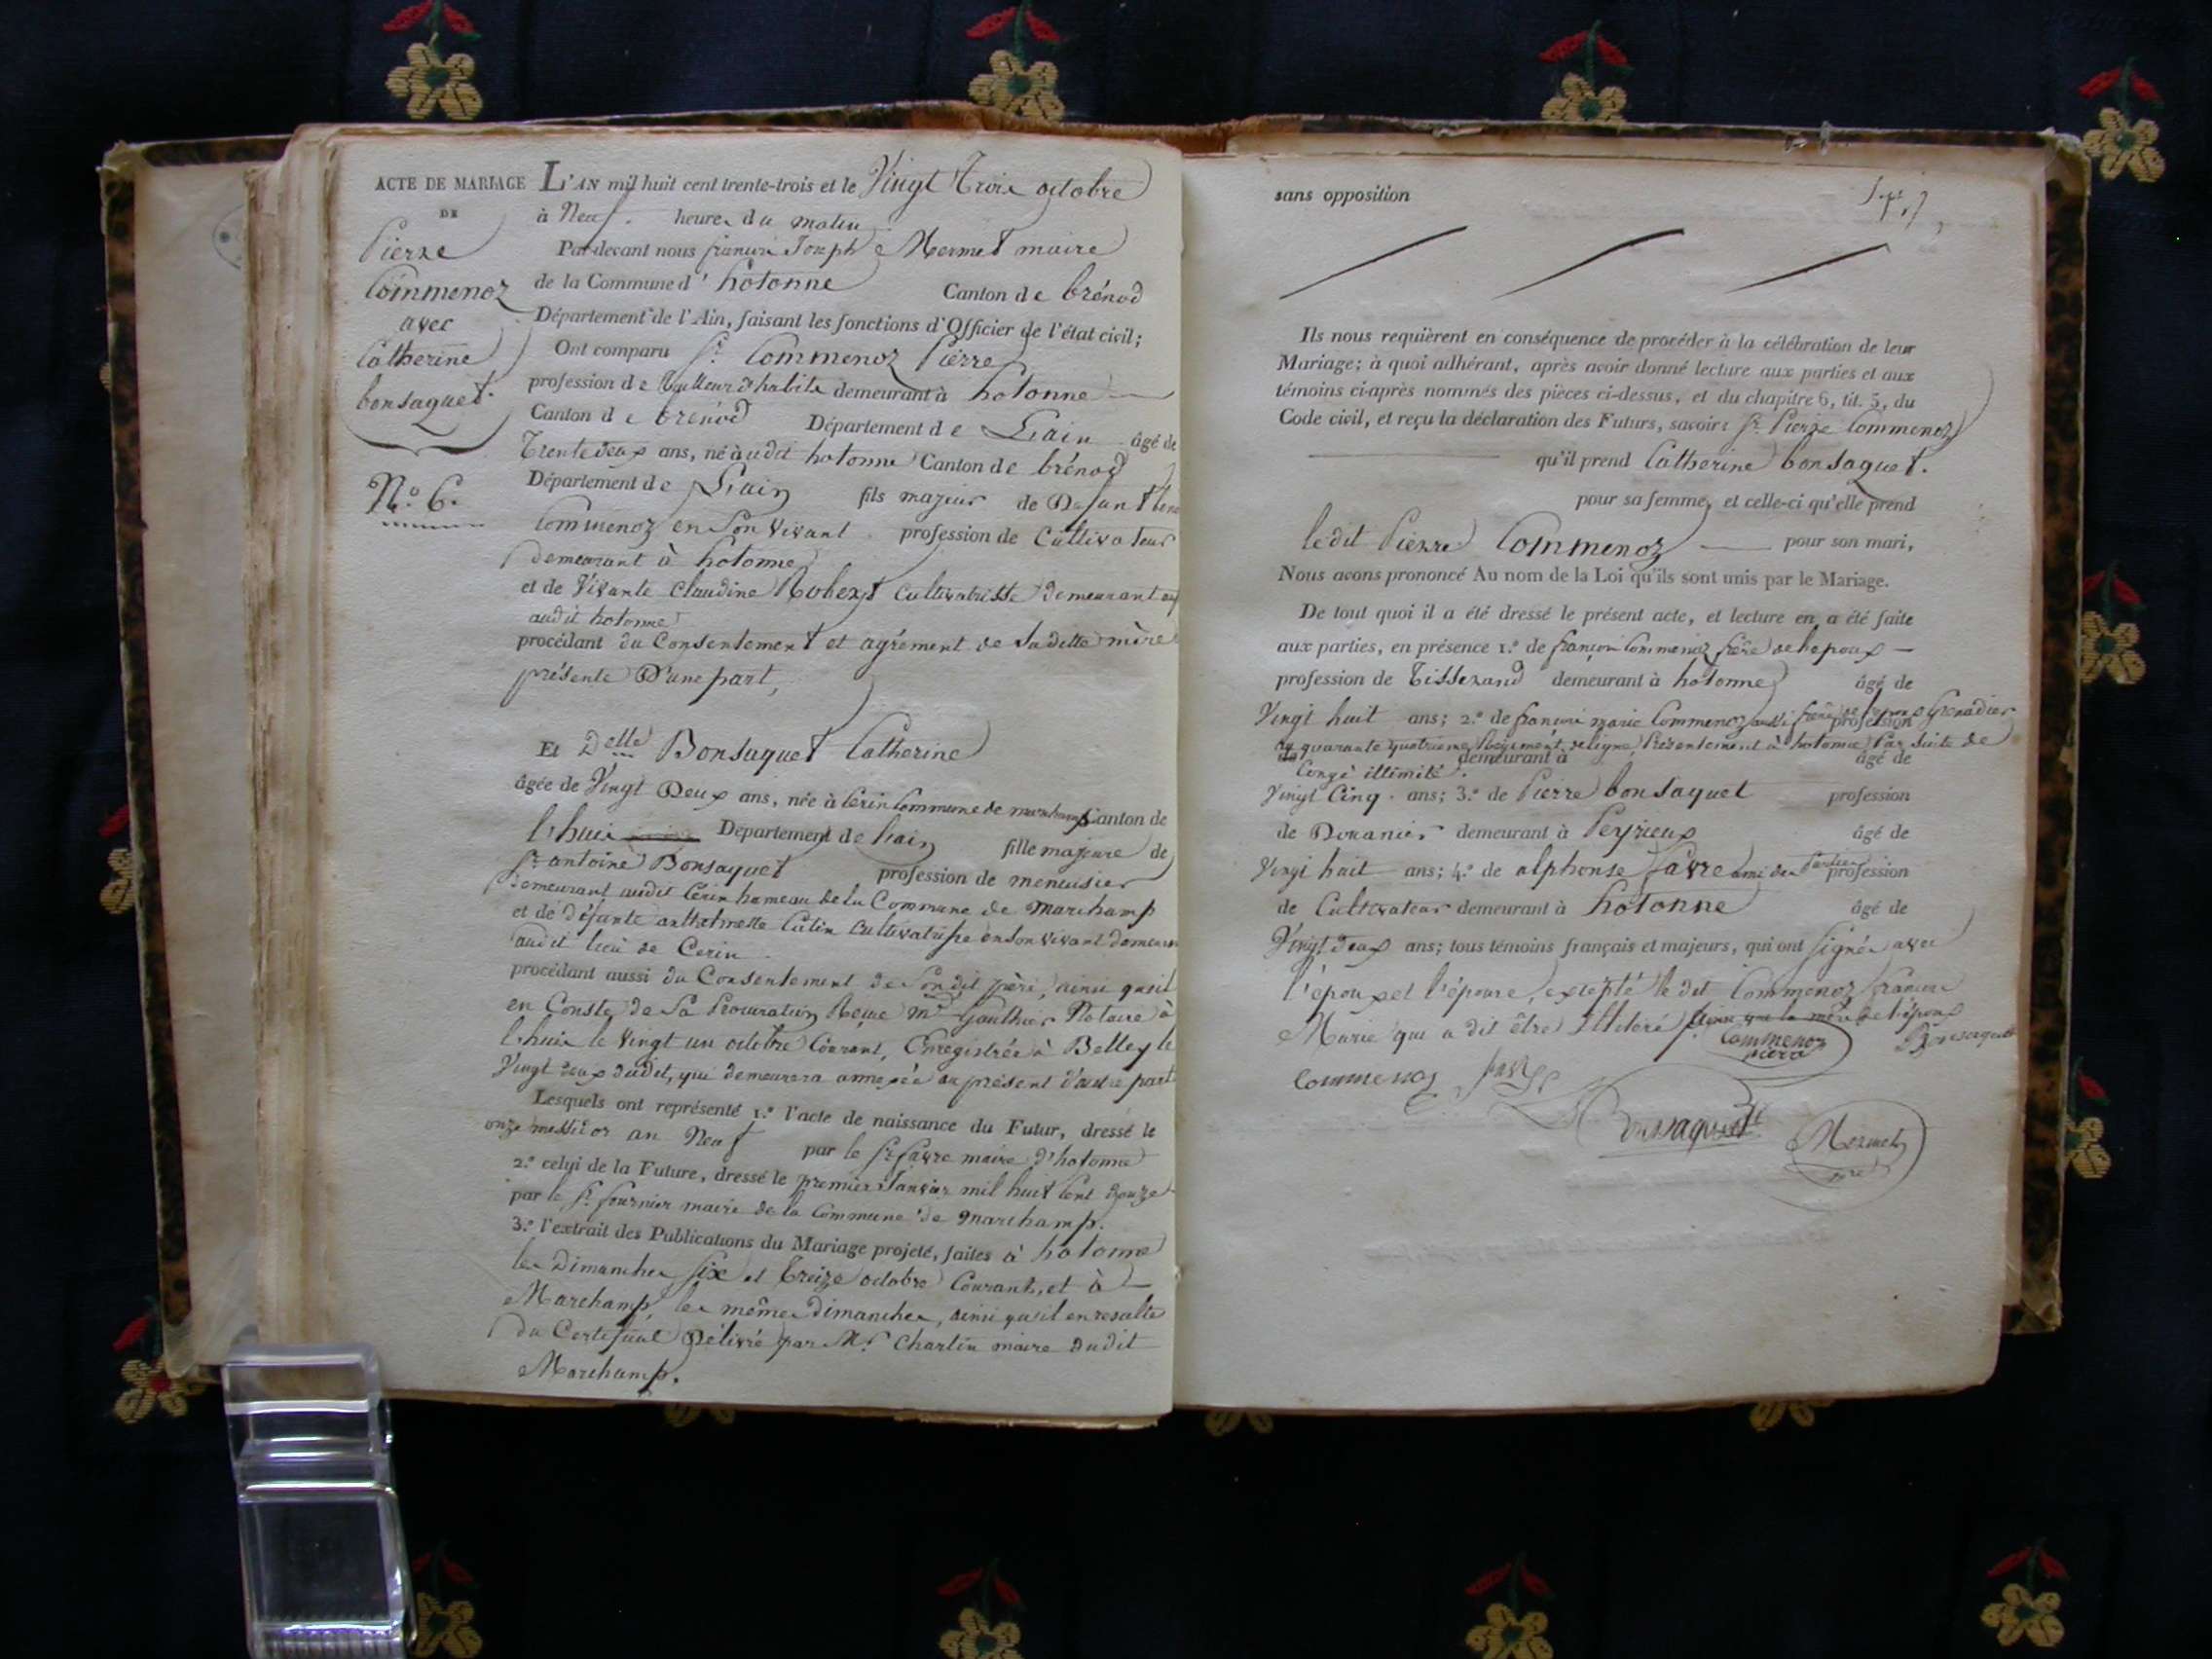 ACTE DE MARIAGE
DE
Pierre
Commenoz
avec
Catherine
bonsaquet.
N.º 6.
L'AN mil huit cent trente-trois et le Vingt Trois octobre
à Neuf heures du matin
Par-devant nous françois Joseph Mermet maire
de la Commune d'hotonne Canton de brénod
Département de l'Ain, faisant les fonctions d'Officier de l'état civil;
Ont comparu Sr. Commenoz Pierre
profession de Tailleur d'habits demeurant à hotonne
Canton de brénod Département de Lain âgé de
Trente deux ans, né audit hotonne Canton de brénod
Département de Lain fils majeur de Defunt
Commenoz en Son vivant profession de Cultivateur
demeurant à hotonne
et de Vivante Claudine Robert Cultivatrisse demeurant
audit hotonne
procédant du Consentement et agrément de Sa ditte mère
présente D'une part,
Et Delle Bonsaquet Catherine
âgée de Vingt Deux ans, née à Cerin Commune de marchamp Canton de
Lhuis Département de Lain fille majeure de
Sr. antoine Bonsaquet profession de menuisier
demeurant audit Cerin hameau de la Commune de Marchamp
et de défunte Catin Cultivatrisse en son vivant
audit lieu de Cerin
procédant aussi du Consentement de Son dit père, ainsi qu'il
en Conste de Sa Procuration Reçue Mr. Gaulthier Notaire à
Lhuis le vingt un octobre Courant, Enregistrée à Belley le
Vingt deux dudit, qui demeurera annexée au présent d'autre part
Lesquels ont représenté 1.º l'acte de naissance du Futur, dressé le
onze messidor an Neuf par le Sr. favre maire d'hotonne
2.º celui de la Future, dressé le premier Janvier mil huit Cent douze
par le Sr. fournier maire de la Commune de Marchamp.
3.º l'extrait des Publications du Mariage projeté, faites à hotonne
les Dimanches Six et Treize octobre Courant, et à
Marchamp, les mêmes dimanches, ainsi qu'il en resulte
du Certificat Délivré par Mr. Charlin maire dudit
Marchamp.
sans opposition
Ils nous requièrent en conséquence de procéder à la célébration de leur
Mariage; à quoi adhérant, après avoir donné lecture aux parties et aux
témoins ci-après nommés des pièces ci-dessus, et du chapitre 6, tit. 5, du
Code civil, et reçu la déclaration des Futurs, savoir: Sr. Pierre Commenoz
qu'il prend Catherine bonsaquet.
pour sa femme, et celle-ci qu'elle prend
le dit Pierre Commenoz pour son mari,
Nous avons prononcé Au nom de la Loi qu'ils sont unis par le Mariage.
De tout quoi il a été dressé le présent acte, et lecture en a été faite
aux parties, en présence 1.º de françois Commenoz frère de l'epoux
profession de Tisserand demeurant à hotonne âgé de
Vingt huit ans; 2.º de françois marie Commenoz aussi frère de l'epoux Grenadier
profession
au quarante quatrieme Regiment de ligne Présentement à hotonne Par Suite de
de demeurant à âgé de
Congé illimité.
Vingt Cinq ans; 3.º de Pierre bonsaquet profession
de Douanier demeurant à Peyrieux âgé de
Vingt huit ans; 4.º de alphonse favre ami des Parties profession
de Cultivateur demeurant à hotonne âgé de
Vingt Deux ans; tous témoins français et majeurs, qui ont Signés avec
l'époux et l'épouse, excepté le dit Commenoz francois
Marie qui a dit être Illeteré ainsi que la mère de l'époux
Commenoz
piere
Bonsaquet
Commenoz favre
Bonsaquet
Mermet